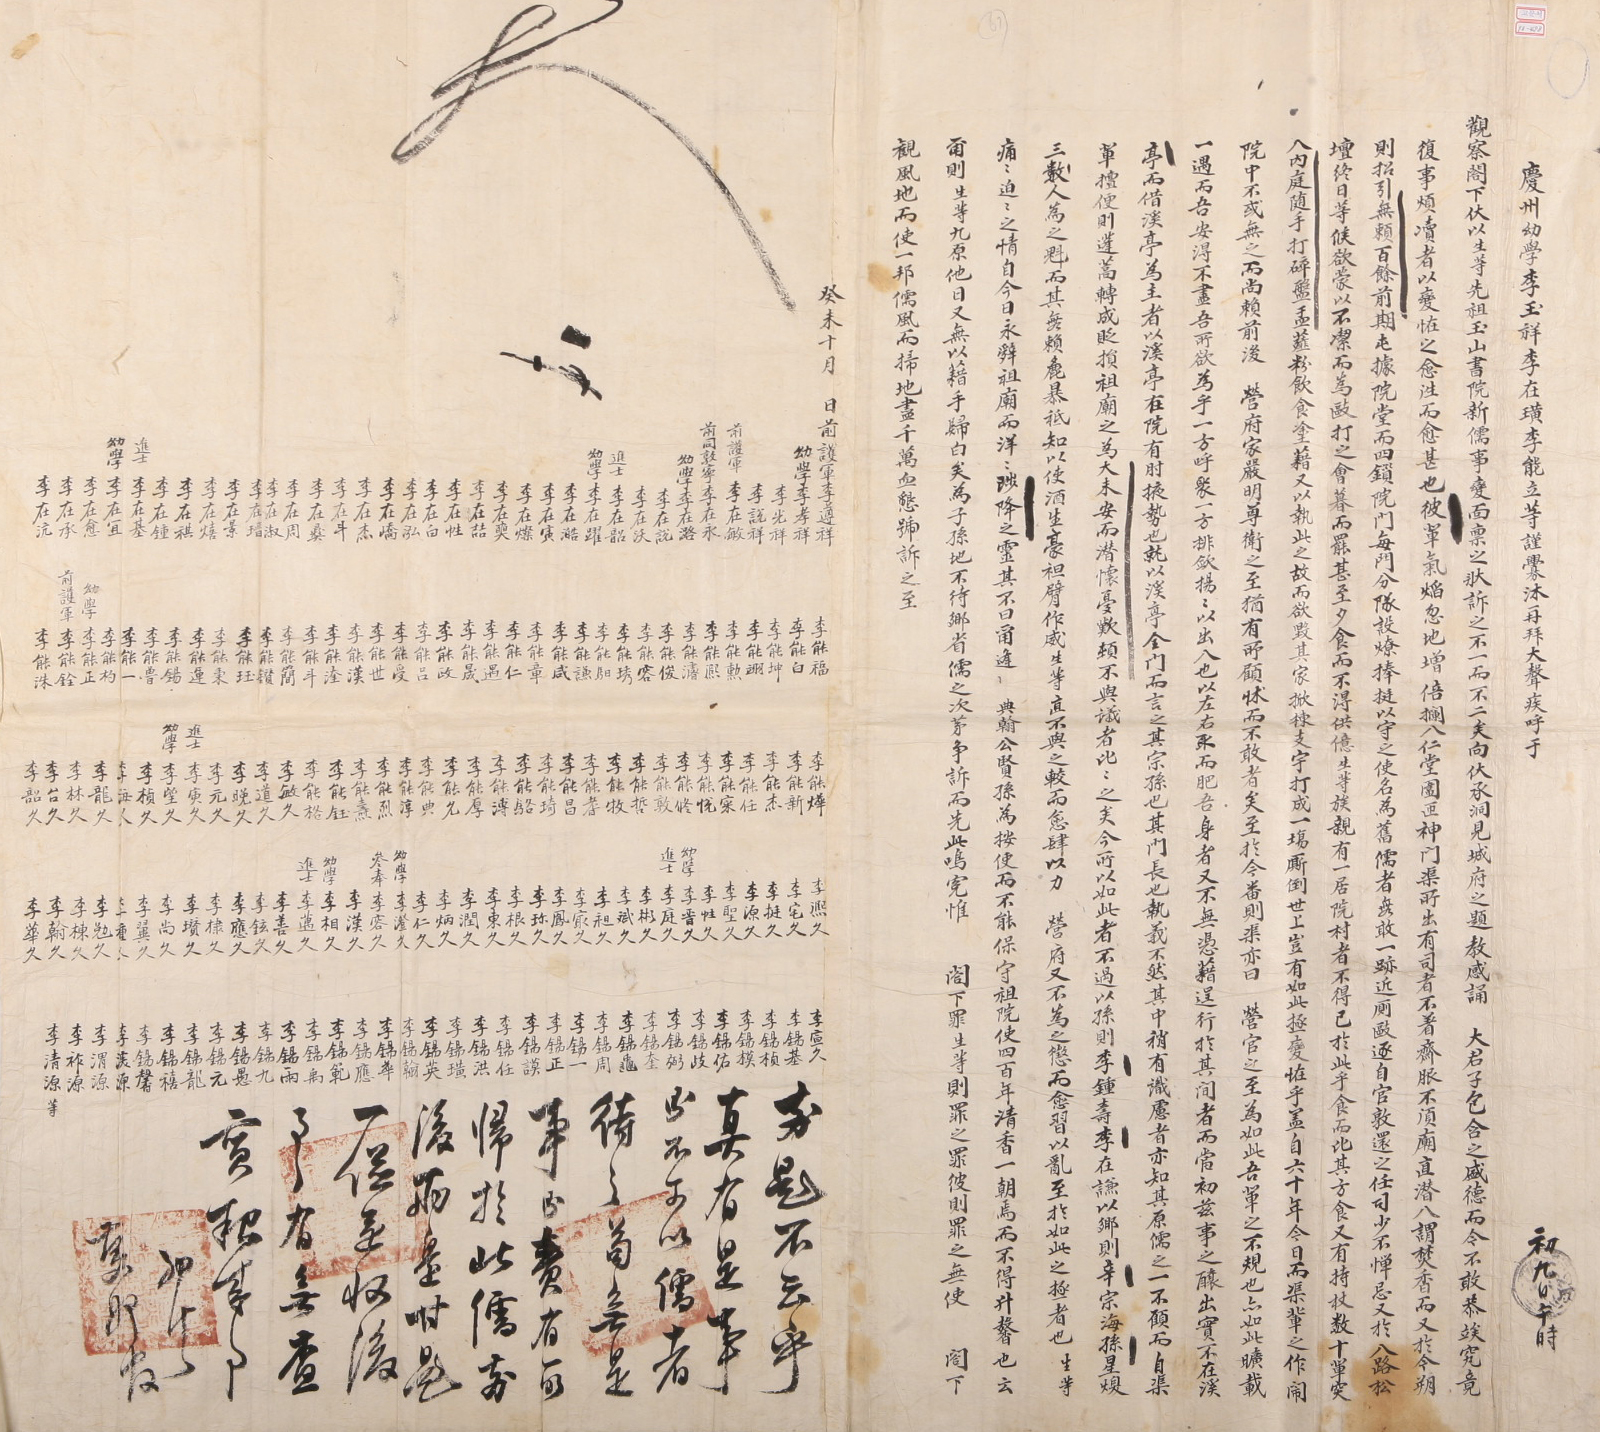 慶州幼學李玉祥李在璜李能立等謹齋沐再拜大聲疾呼于
觀察閤下伏以生等先祖玉山書院新儒事變面稟之狀訴之不一而不二矣向伏承洞見城府之題教感誦 大君子包含之盛德而今不敢恭竢究竟
復事煩瀆者以變恠之愈迬而愈甚也彼輩氣焰忽地增倍攔入仁堂圍匝神門渠所出有司者不着齊服不湏廟直潛入謂焚香而又於今朔
則招引無賴百餘前期屯據院堂而四鎖院門每門分隊設燎捧挺以守之使名爲舊儒者無敢一跡近厠毆逐自官敦還之任司少不憚忌又於八路松
壇終日等候欲蒙以不潔而爲毆打之會暮而罷甚至夕食而不得供億生等族親有一居院村者不得已於此乎食而此其方食又有持杖數十輩突
入內庭隨手打碎盤盂虀粉飲食塗藉又以執此之故而欲毀其家掀棟支宇打成一塲厮倒世上豈有如此極變恠乎盖自六十年今日而渠輩之作鬧
院中不或無之而尚賴前後 營府家嚴明尊衛之至猶有所顧怵而不敢者矣至於今番則渠亦曰 營官之至爲如此吾輩之不規也亦如此曠載
一遇而吾安得不盡吾所欲爲乎一方呼衆一方排歛揚揚以出入也以左右取而肥吾身者又不無憑藉逞行於其間者而當初茲事之釀出實不在溪
亭而借溪亭爲主者以溪亭在院有肘掖勢也就以溪亭全門而言之其宗孫也其門長也執義不然其中稍有識慮者亦知其原儒之一不顧而自渠
輩擅便則蓬蒿轉成貶損祖廟之爲大未安而潛懷憂歎頼不與議者比比之矣今所以如此者不過以孫則李鍾壽李在謙以鄉則辛宗海孫星煥
三數人爲之魁而其無賴麁暴秪知以使酒生豪袒臂作威生等直不與之較而愈肆以力 營府又不爲之懲而愈習以亂至於如此之極者也 生等
痛痛迫迫之情自今日永辭祖廟而洋洋陟降之靈其不曰甫逢 典翰公賢孫爲按使而不能保守祖院使四百年淸香一朝焉而不得升馨也云
甫則生等九原他日又無以藉手歸白矣爲子孫地不待鄉省儒之次苐爭訴而先此嗚寃惟 閤下罪生等則罪之罪彼則罪之無使 閤下
觀風地而使一邦儒風而掃地盡千萬血懇號訴之至
癸未十月 日前護軍李遵祥
幼學李孝祥
李光祥
李說祥
前護軍李在敏
前同敦寧李在永
幼學李在璐
李在說
李在沃
進士李在韶
幼學李在躍
李在澔
李在寅
李在爍
李在奭
李在喆
李在性
李在白
李在泓
李在嶠
李在杰
李在斗
李在燊
李在周
李在淑
李在璿
李在景
李在熺
李在祺
李在鍾
進士李在基
幼學李在宜
李在愈
李在承
李在沆
李能福
李能白
李能坤
李能翊
李能勳
李能熙
李能濤
李能俊
李能容
李能琇
李能馹
李能謙
李能咸
李能章
李能仁
李能遇
李能晟
李能政
李能呂
李能受
李能世
李能漢
李能淦
李能斗
李能簡
李能鑽
李能珏
李能東
李能運
李能錫
李能曹
李能一
李能杓
幼學李能正
前護軍李能銓
李能洙
李能燁
李能新
李能杰
李能任
李能宷
李能悅
李能修
李能敦
李能哲
李能牧
李能耆
李能昌
李能琦
李能駱
李能溥
李能厚
李能允
李能典
李能淳
李能烈
李能燾
李能鈺
李能格
李敏久
李道久
李晩久
李寅久
李元久
進士李瑩久
幼學李楨久
李海久
李龍久
李林久
李台久
李韶久
李熙久
李宅久
李挺久
李源久
李聖久
李性久
幼學李晋久
進士李庭久
李彬久
李斌久
李昶久
李家久
李鳳久
李珎久
李根久
李東久
李潤久
李炳久
李仁久
幼學李瀅久
參奉李容久
李漢久
幼學李相久
進士李邁久
李善久
李鉉久
李應久
李棣久
李瓚久
李尚久
李翼久
李久
李勉久
李棟久
李翰久
李華久
李宣久
李錫基
李錫楨
李錫模
李錫佑
李錫岐
李錫弼
李錫奎
李錫龜
李錫周
李錫一
李錫正
李錫謨
李錫任
李錫洪
李錫璜
李錫英
李錫翰
李錫華
李錫應
李錫範
李錫禹
李錫雨
李錫九
李錫晏
李錫元
李錫龍
李錫禧
李錫馨
李漢源
李渭源
李祚源
李淸源 等
初九日午時
亦題不云乎
眞有是事
面不可以儒者
待之苟無是
事面費有所
歸於此儒亦
後兩造對是
一從並收後
了者無查
實報事
初九日